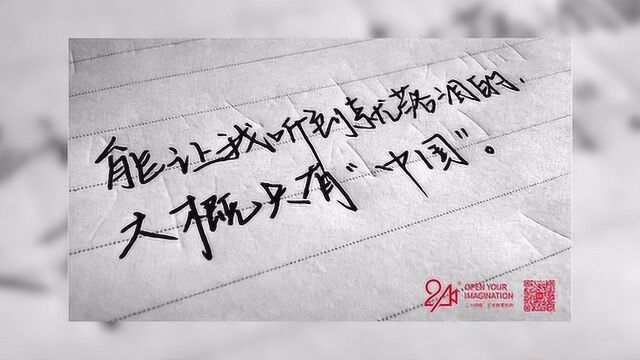 能让我听到就落泪的，
大概只有“中国”。
24
OPEN YOUR
IMAGINATION